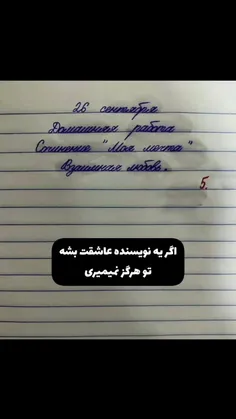 26 сентября
Домашняя работа
Сочинение "Моя мечта"
Взаимная любовь.
5.
اگر یه نویسنده عاشقت بشه
تو هرگز نمیمیری